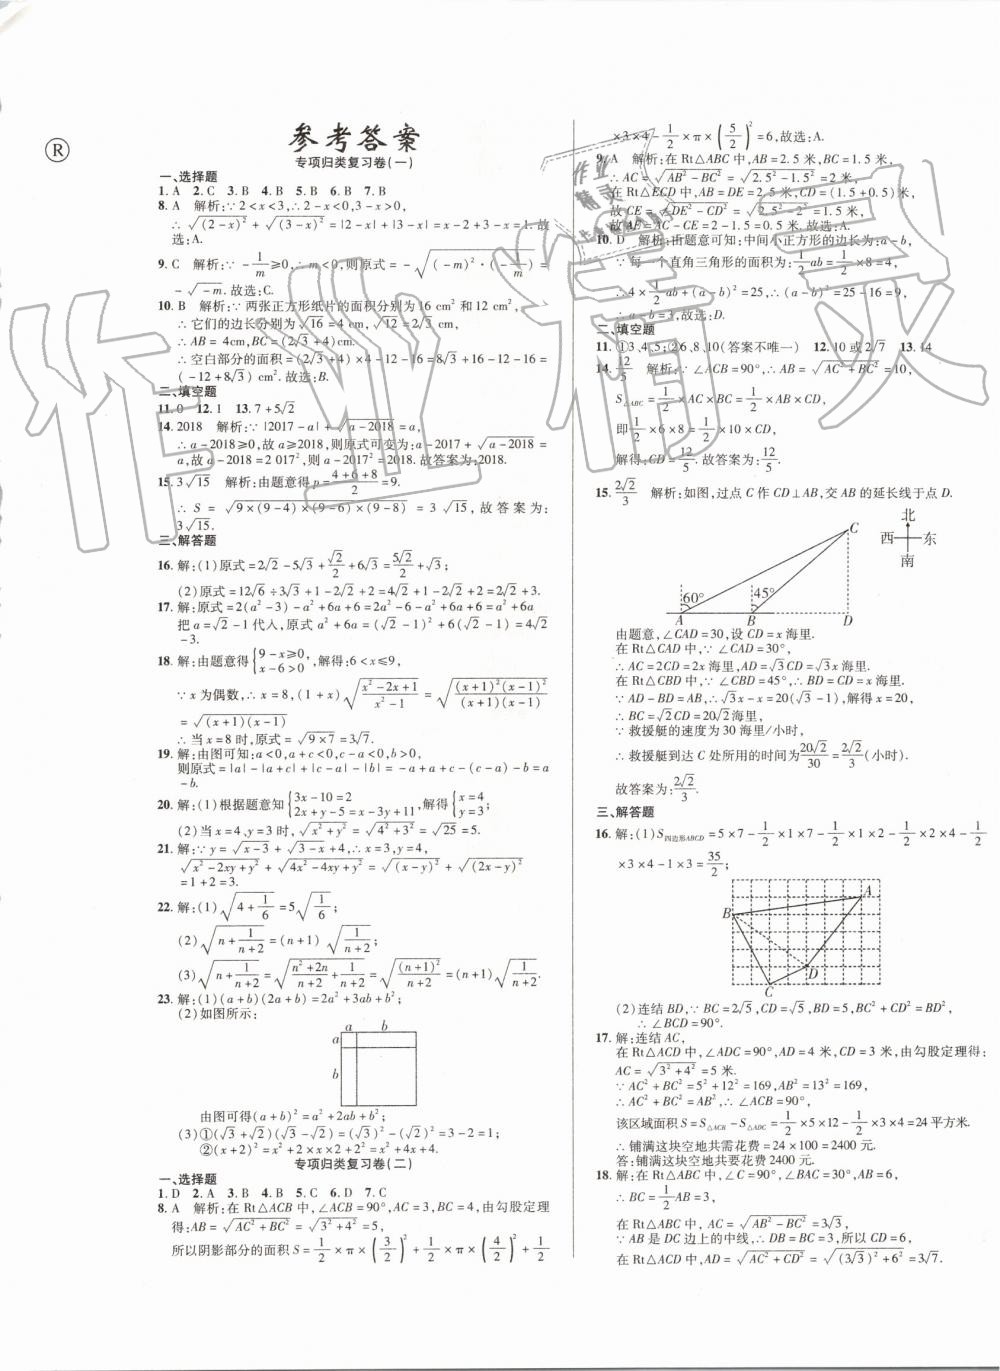 R
参考答案
专项归类复习卷(一)
一、选择题
1. A  2. C  3. B  4. B  5. B  6. B  7. B
8. A  解析:∵2<x<3,∴2-x<0,3-x>0,
∴√(2-x)²+√(3-x)²=|2-x|+|3-x|=x-2+3-x=1.故
选:A.
9. C  解析:∵-1/m≥0,∴m<0,则原式=-√((-m)²·(-1/m))=
-√-m.故选:C.
10. B  解析:∵两张正方形纸片的面积分别为16 cm²和12 cm²,
∴它们的边长分别为√16=4 cm,√12=2√3 cm,
∴AB=4cm,BC=(2√3+4)cm.
∴空白部分的面积=(2√3+4)×4-12-16=8√3+16-12-16=
(-12+8√3) cm².故选:B.
二、填空题
11. 0  12. 1  13. 7+5√2
14. 2018  解析:∵|2017-a|+√a-2018=a,
∴a-2018≥0,故a≥2018,则原式可变为:a-2017+√a-2018=
a,故a-2018=2 017²,则a-2017²=2018.故答案为:2018.
15. 3√15  解析:由题意得p=(4+6+8)/2=9.
∴S=√9×(9-4)×(9-6)×(9-8)=3√15,故答案为:
3√15.
三、解答题
16. 解:(1)原式=2√2-5√3+√2/2+6√3=5√2/2+√3;
(2)原式=12√6÷3√3+1-2√2+2-1=4√2+1-2√2+2-1=2√2+2.
17. 解:原式=2(a²-3)-a²+6a+6=2a²-6-a²+6a+6=a²+6a
把a=√2-1代入,原式=a²+6a=(√2-1)²+6(√2-1)=4√2
-3.
18. 解:由题意得{9-x≥0, x-6>0 解得:6<x≤9,
∵x为偶数,∴x=8,(1+x)√((x²-2x+1)/(x²-1))=√((x+1)²(x-1)²/((x+1)(x-1)))
=√(x+1)(x-1)
∴当x=8时,原式=√9×7=3√7.
19. 解:由图可知:a<0,a+c<0,c-a<0,b>0;
则原式=|a|-|a+c|+|c-a|-|b|=-a+a+c-(c-a)-b=a
-b.
20. 解:(1)根据题意知{3x-10=2 2x+y-5=x-3y+11,解得{x=4 y=3;
(2)当x=4、y=3时,√x²+y²=√4²+3²=√25=5.
21. 解:∵y=√x-3+√3-x+4,∴x=3,y=4,
√x²-2xy+y²+√4x²-4xy+y²=√(x-y)²+√(2x-y)²
=1+2=3.
22. 解:(1)√(4+1/6)=5√(1/6);
(2)√(n+1/(n+2))=(n+1)√(1/(n+2));
(3)√(n+1/(n+2))=√((n²+2n)/(n+2)+1/(n+2))=√((n+1)²/(n+2))=(n+1)√(1/(n+2)).
23. 解:(1)(a+b)(2a+b)=2a²+3ab+b²;
(2)如图所示:
a b
a
b
由图可得(a+b)²=a²+2ab+b²;
(3)①(√3+√2)(√3-√2)=(√3)²-(√2)²=1;
②(x+2)²=x²+4x+4.
专项归类复习卷(二)
一、选择题
1. D  2. A  3. B  4. B  5. C  6. D  7. C
8. A  解析:在Rt△ACB中,∠ACB=90°,AC=3,BC=4,由勾股定理
得:AB=√AC²+BC²=√3²+4²=5,
所以阴影部分的面积S=1/2×π×(3/2)²+1/2×π×(4/2)²+1/2
×3×4-1/2×π×(5/2)²=6,故选:A.
9. A  解析:在Rt△ABC中,AB=2.5米,BC=1.5米,
∴AC=√AB²-BC²=√2.5²-1.5²=2米,
在Rt△ECD中,AB=DE=2.5米,CD=(1.5+0.5)米,
故CE=√DE²-CD²=√2.5²-2²=1.5米,
故AE=AC-CE=2-1.5=0.5米.故选:A.
10. D  解析:由题意可知:中间小正方形的边长为:a-b,
∵每一个直角三角形的面积为:1/2ab=1/2×8=4,
∴4×1/2ab+(a-b)²=25,∴(a-b)²=25-16=9,
∴a-b=3,故选:D.
二、填空题
11. ①3,4,5;②6,8,10(答案不唯一)  12. 10或2√7  13. 14
14. 12/5  解析:∵∠ACB=90°,∴AB=√AC²+BC²=10,
S△ABC=1/2×AC×BC=1/2×AB×CD,
即1/2×6×8=1/2×10×CD,
解得:CD=12/5.故答案为:12/5.
15. 2√2/3  解析:如图,过点C作CD⊥AB,交AB的延长线于点D.
北
西 东
南
C
60° 45°
A B D
由题意,∠CAD=30,设CD=x海里.
在Rt△ACD中,∵∠CAD=30°,
∴AC=2CD=2x海里,AD=√3CD=√3x海里.
在Rt△CBD中,∵∠CBD=45°,∴BD=CD=x海里,
∵AD-BD=AB,∴√3x-x=20(√3-1),解得x=20,
∴BC=√2CD=20√2海里,
∵救援艇的速度为30海里/小时,
∴救援艇到达C处所用的时间为20√2/30=2√2/3(小时).
故答案为:2√2/3.
三、解答题
16. 解:(1)S四边形ABCD=5×7-1/2×1×7-1/2×1×2-1/2×2×4-1/2
×3×4-1×3=35/2;
A
B
D
C
(2)连结BD,∵BC=2√5,CD=√5,BD=5,BC²+CD²=BD²,
∴∠BCD=90°.
17. 解:连结AC,
在Rt△ACD中,∠ADC=90°,AD=4米,CD=3米,由勾股定理得:
AC=√3²+4²=5米.
∵AC²+BC²=5²+12²=169,AB²=13²=169,
∴AC²+BC²=AB²,∴∠ACB=90°,
该区域面积=S△ACB-S△ADC=1/2×5×12-1/2×3×4=24平方米.
∴铺满这块空地共需花费=24×100=2400元.
答:铺满这块空地共要花费2400元.
18. 解:在Rt△ABC中,∠C=90°,∠BAC=30°,AB=6,
∴BC=1/2AB=3,
在Rt△ABC中,AC=√AB²-BC²=3√3,
∵AB是DC边上的中线,∴DB=BC=3,所以CD=6,
在Rt△ACD中,AD=√AC²+CD²=√(3√3)²+6²=3√7.
作业精灵
作业
精灵